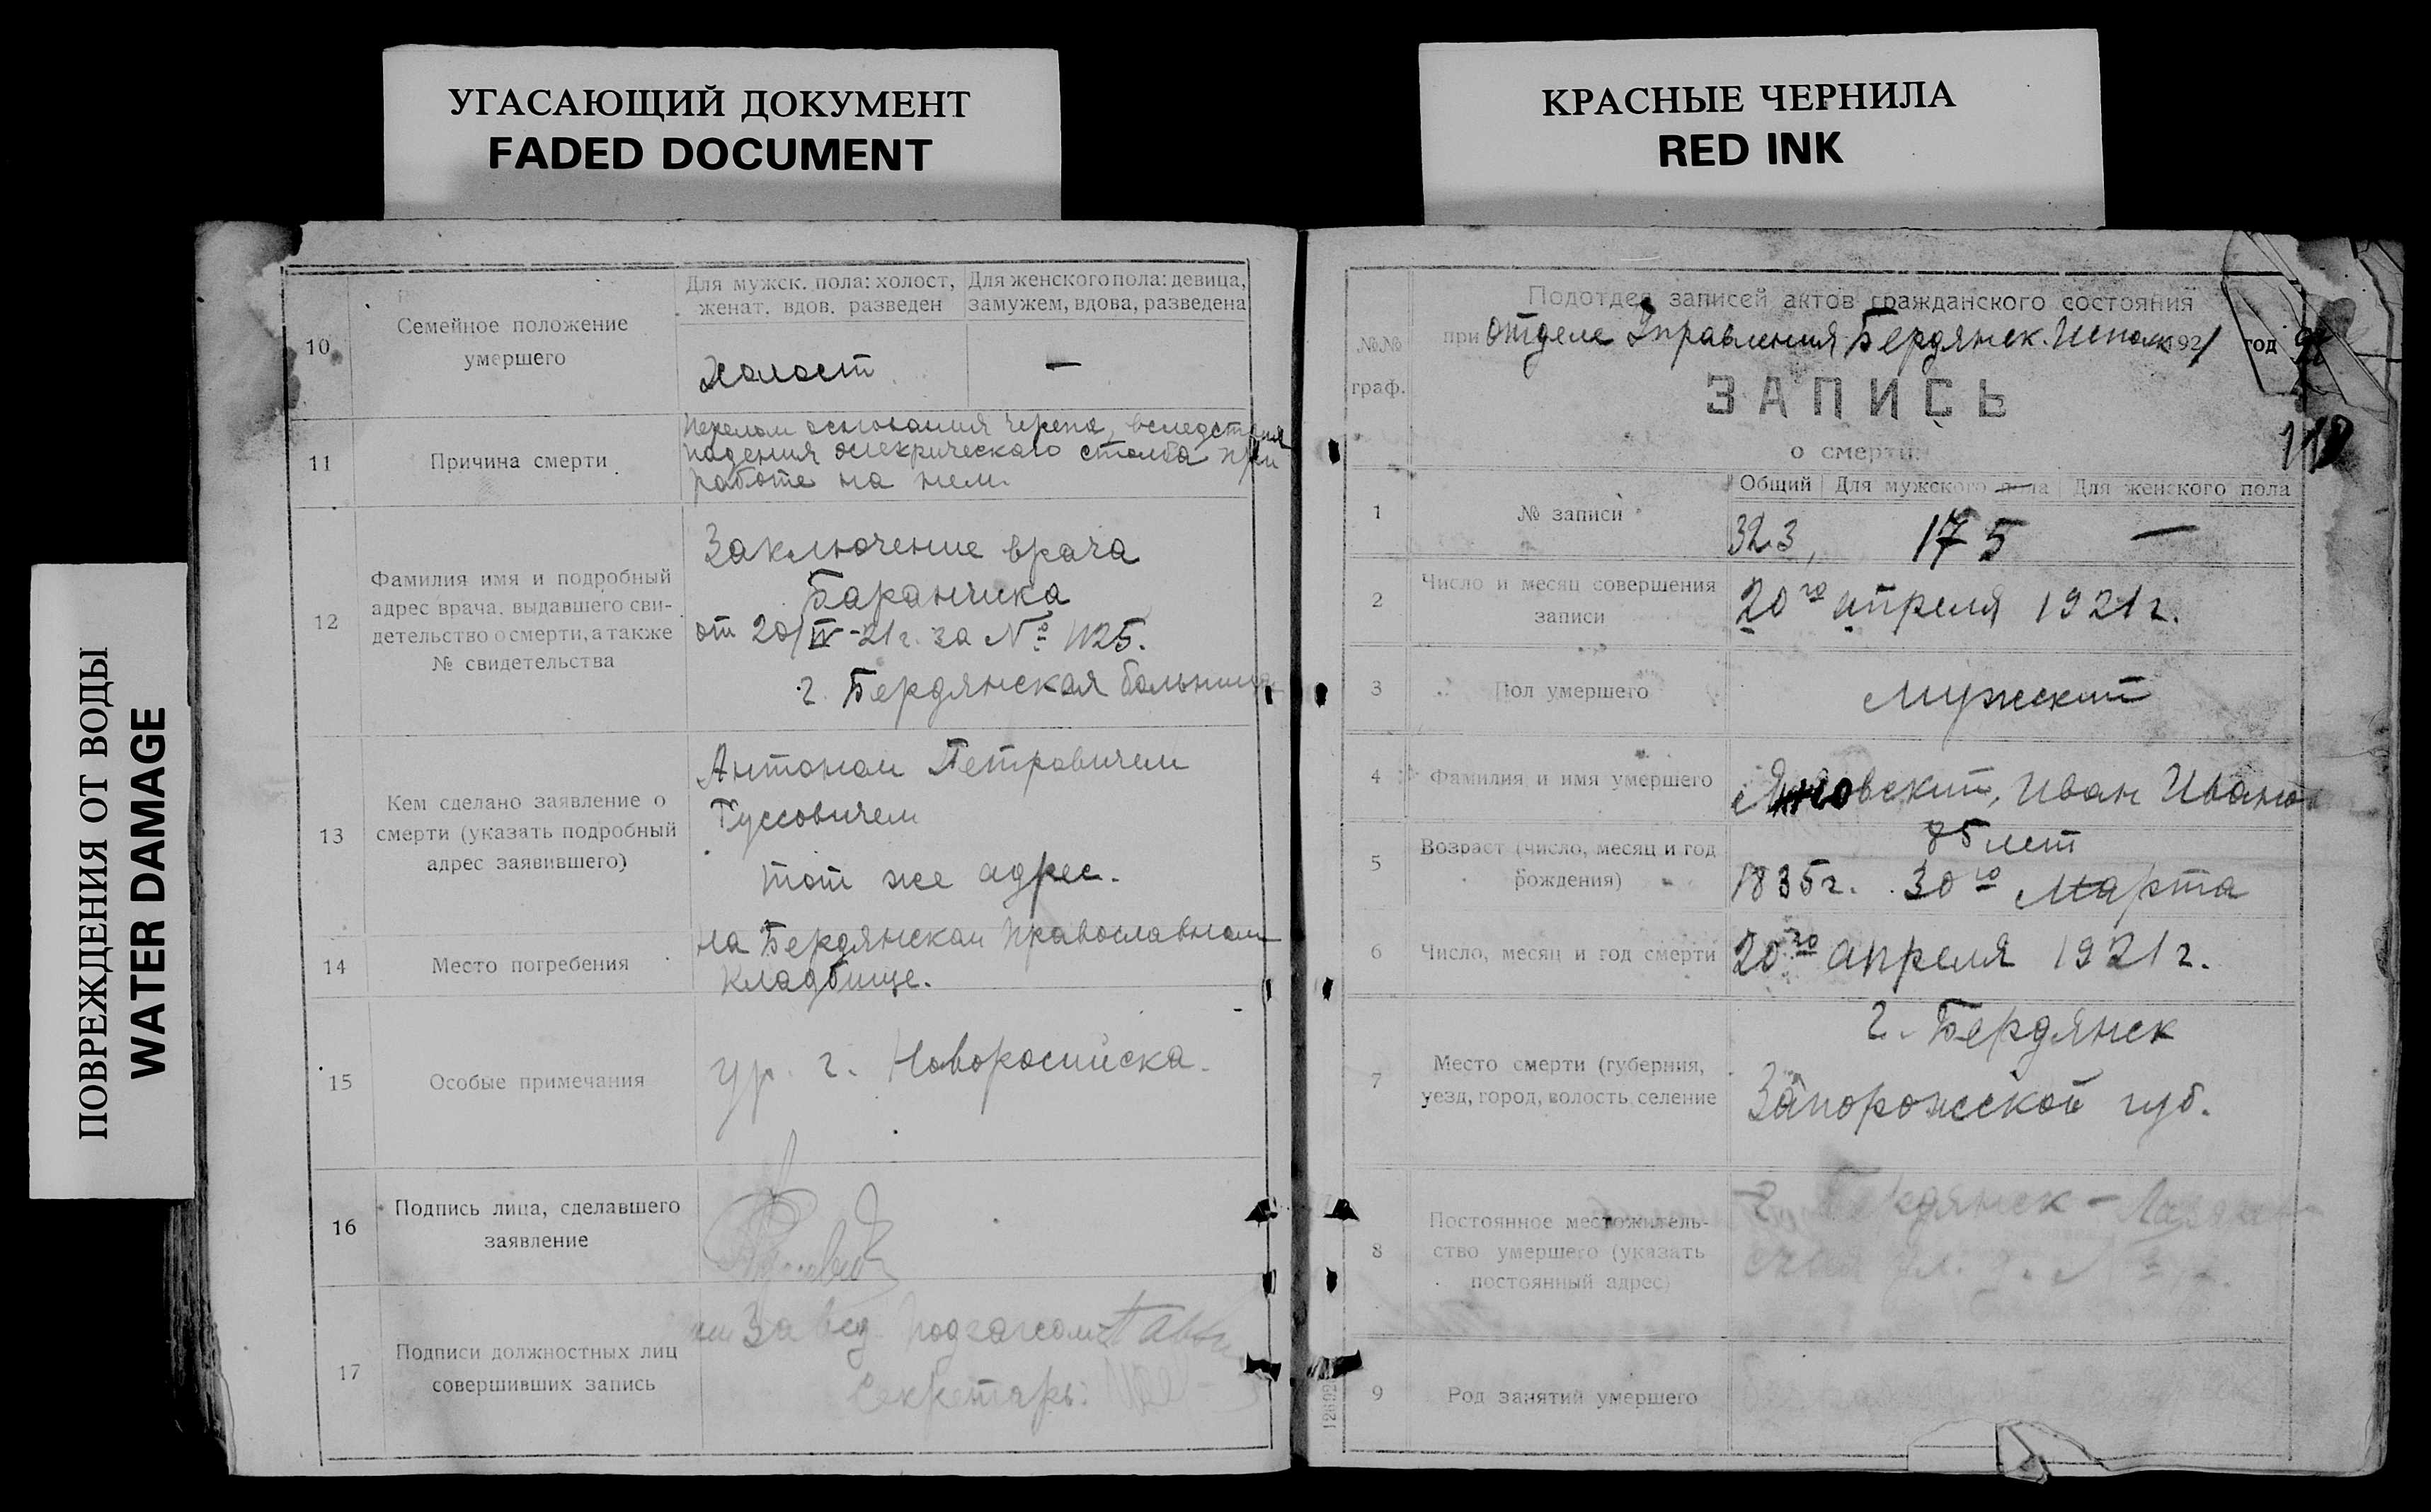 УГАСАЮЩИЙ ДОКУМЕНТ
FADED DOCUMENT
КРАСНЫЕ ЧЕРНИЛА
RED INK
ПОВРЕЖДЕНИЯ ОТ ВОДЫ
WATER DAMAGE
10
Семейное положение
умершего
Для мужск. пола: холост,
женат, вдов. разведен
Для женского пола: девица,
замужем, вдова, разведена
Холост
—
11
Причина смерти
Перелом основания черепа, вследствия
падения элекрическаго столба при
работе на нем.
12
Фамилия имя и подробный
адрес врача, выдавшего сви-
детельство о смерти, а также
№ свидетельства
Заключение врача
Баранчика
от 20/IV-21г. за № 1125.
г. Бердянская больница
13
Кем сделано заявление о
смерти (указать подробный
адрес заявившего)
Антоном Петровичем
Гуссовичем
тот же адрес.
14
Место погребения
на Бердянском православном
кладбище.
15
Особые примечания
ур. г. Новоросийска.
16
Подпись лица, сделавшего
заявление
17
Подписи должностных лиц
совершивших запись
Завед. Подзагсом
Секретарь:
№№
граф.
Подотдел записей актов гражданского состояния
при Отделе Управления Бердянск. Исполк 1921 год
ЗАПИСЬ
о смерти.
118
1
№ записи
Общий
Для мужского пола
Для женского пола
323,
175
—
2
Число и месяц совершения
записи
20го апреля 1921г.
3
Пол умершего
мужский
4
Фамилия и имя умершего
Иван Иванов
5
Возраст (число, месяц и год
рождения)
85 лет
1835г. 30го Марта
6
Число, месяц и год смерти
20го апреля 1921г.
7
Место смерти (губерния,
уезд, город, волость, селение
г. Бердянск
Запорожской губ.
8
Постоянное местожитель-
ство умершего (указать
постоянный адрес)
г. Бердянск -
9
Род занятий умершего